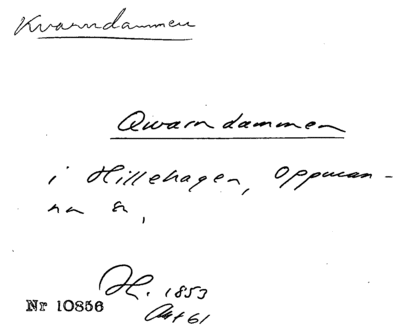 Kvarndammen
Qwarndammen
i Hillehagen, Oppman-
na s,
H. 1853
Akt 61
Nr 10856